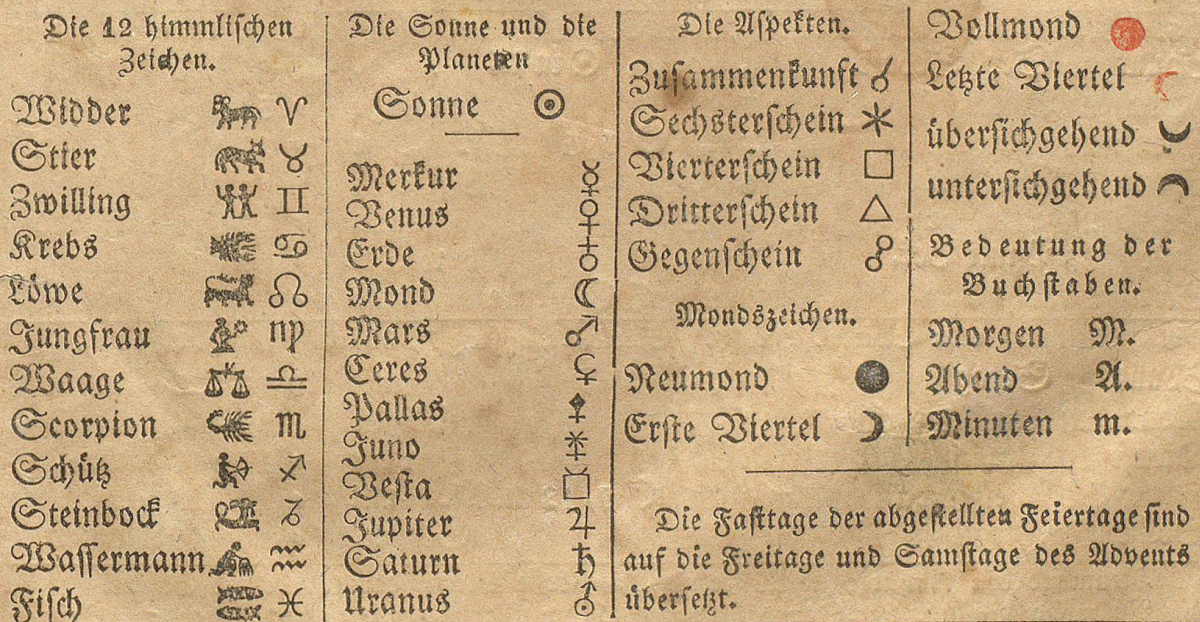 Die 12 himmlischen
Zeichen.
Widder ♈
Stier ♉
Zwilling ♊
Krebs ♋
Löwe ♌
Jungfrau ♍
Waage ♎
Scorpion ♏
Schütz ♐
Steinbock ♑
Wassermann ♒
Fisch ♓
Die Sonne und die
Planeten
Sonne ☉
Merkur ☿
Venus ♀
Erde ♁
Mond ☾
Mars ♂
Ceres ⚳
Pallas ⚴
Juno ⚵
Vesta ⚶
Jupiter ♃
Saturn ♄
Uranus ⛢
Die Aspekten.
Zusammenkunft ☌
Sechsterschein ⚹
Vierterschein □
Dritterschein △
Gegenschein ☍
Mondszeichen.
Neumond ●
Erste Viertel ☽
Vollmond
Letzte Viertel
übersichgehend
untersichgehend
Bedeutung der
Buchstaben.
Morgen M.
Abend A.
Minuten m.
Die Fasttage der abgestellten Feiertage sind
auf die Freitage und Samstage des Advents
übersetzt.